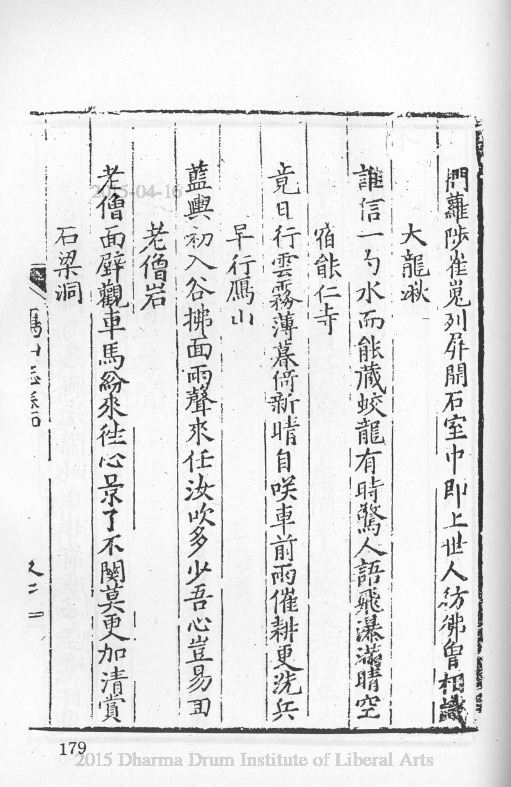 捫蘿陟崔嵬列屏開石室中即上世人彷彿曾相識
大龍湫
誰信一勺水而能藏蛟龍有時驚人語飛瀑滿晴空
宿能仁寺
竟日行雲霧薄暮倚新晴自咲車前雨催耕更洗兵
早行鴈山
藍輿初入谷拂面雨聲來任汝吹多少吾心豈易回
老僧岩
老僧面壁觀車馬紛來徃心景了不関莫更加清賞
石梁洞
2015-04-16
179
2015 Dharma Drum Institute of Liberal Arts